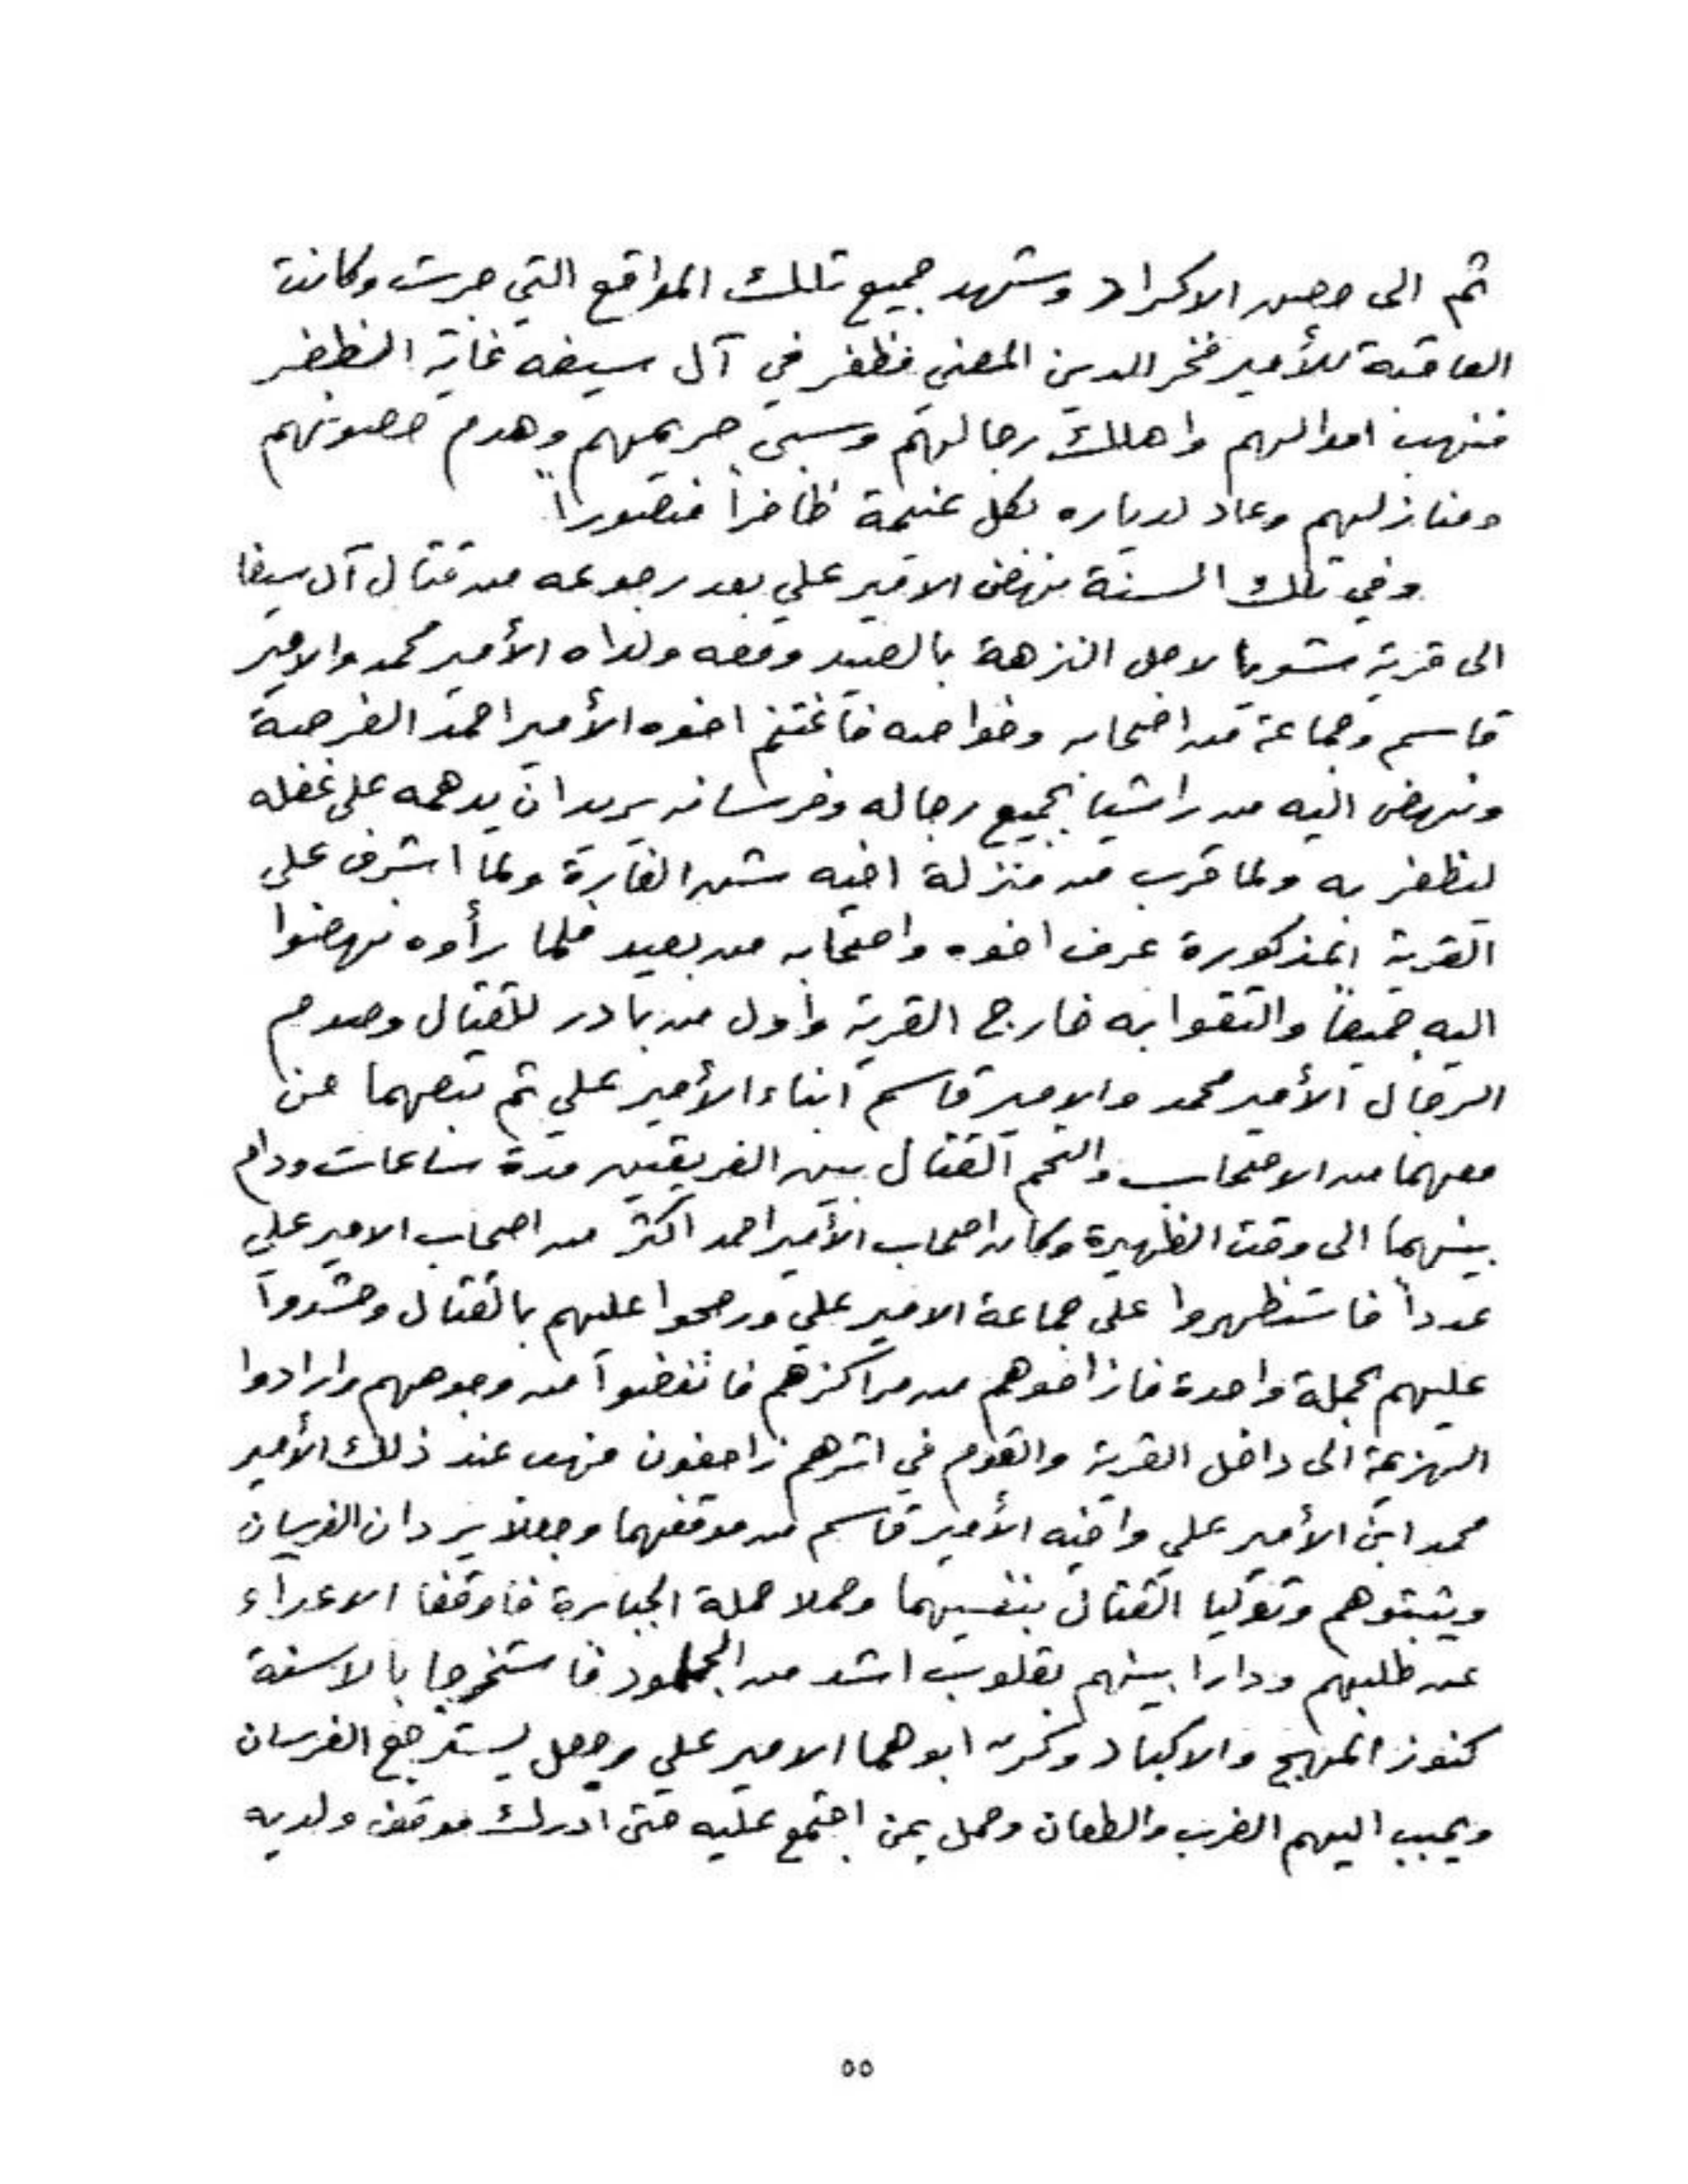 ثم الى حصن الاكراد وشهد جميع تلك المواقع التي جرت وكانت
العاقبة للأمير فخر الدين المعني فظفر في آل سيفه غاية الظفر
فنهب اموالهم واهلك رجالهم وسبى حريمهم وهدم حصونهم
ومنازلهم وعاد لدياره بكل غنيمة ظافراً منصوراً
وفي تلك السنة نهض الامير علي بعد رجوعه من قتال آل سيفا
الى قرية شويا لاجل النزهة بالصيد ومعه ولداه الأمير محمد والامير
قاسم وجماعة من اصحابه وخواصه فاغتنم اخوه الأمير احمد الفرصة
ونهض اليه من راشيا بجميع رجاله وفرسانه يريد ان يدهمه على غفله
ليظفر به ولما قرب من منزلة اخيه شن الغارة ولما اشرف على
القرية المذكورة عرف اخوه واصحابه من بعيد فلما رأوه نهضوا
اليه جميعاً والتقوا به خارج القرية واول من بادر للقتال وصدم
الرجال الأمير محمد والامير قاسم ابناء الأمير علي ثم تبعهما من
معهما من الاصحاب والتحم القتال بين الفريقين مدة ساعات ودام
بينهما الى وقت الظهيرة وكان اصحاب الأمير احمد اكثر من اصحاب الامير علي
عدداً فاستظهروا على جماعة الامير علي ورجحوا عليهم بالقتال وشدوا
عليهم بحملة واحدة فازاحوهم من مراكزهم فانفضوا من وجوههم وارادوا
الهزيمة الى داخل القرية والقوم في اثرهم زاحفون فهب عند ذلك الأمير
محمد ابن الأمير علي واخيه الأمير قاسم من موقفهما وجعلا يردان الفرسان
ويثبتوهم وتوليا القتال بنفسيهما وحملا حملة الجبابرة فاوقفا الاعداء
عن طلبهم ودارا بينهم بقلوب اشد من الجلمود فاستخرجا بالاسنة
كنوز المهج والاكباد وكر ابوهما الامير علي وجعل يسترجع الفرسان
ويحبب اليهم الضرب والطعان وحمل بمن اجتمع عليه حتى ادرك موقف ولديه
٥٥